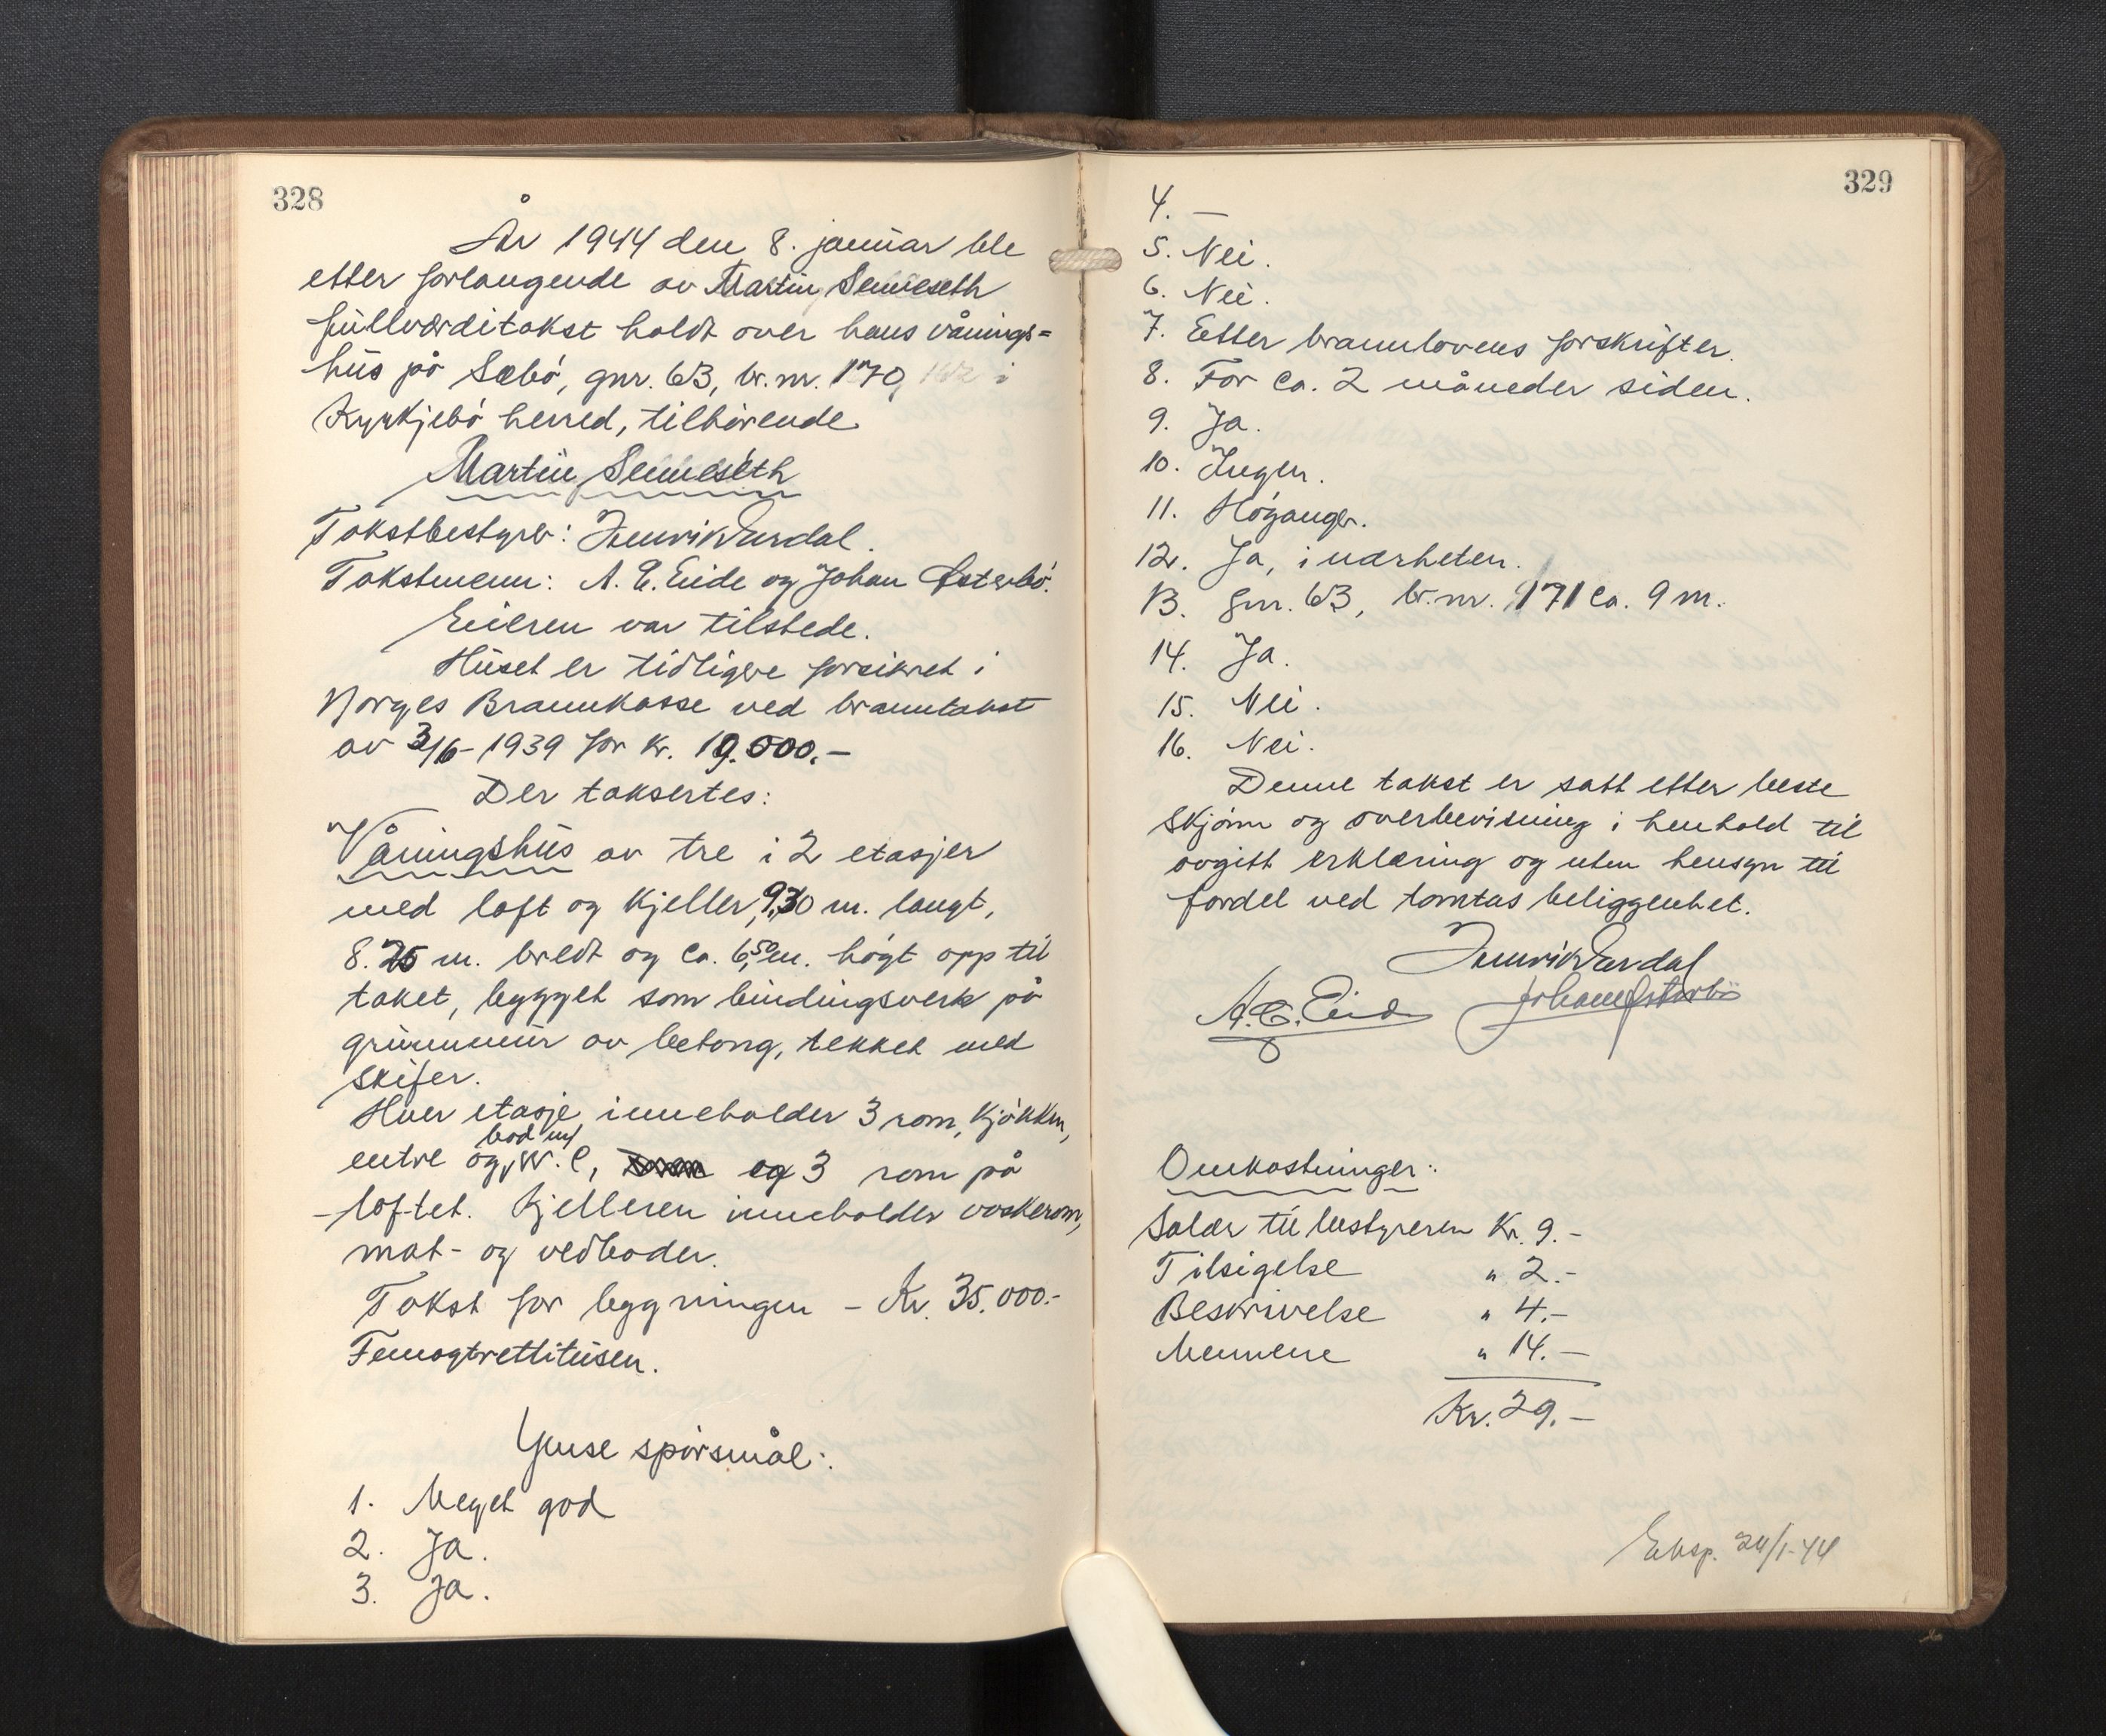 328
År 1944 den 8. januar ble
etter forlangende av Martin Senneseth
fullverditakst holdt over hans vånings=
hus på Sæbø, gnr. 63, br.nr. 170, i
Kyrkjebø herred, tilhørende
Martin Senneseth
Takstbestyrer: Henrik Erdal.
Takstmenn: A. E. Eide og Johan Østerbø.
Eieren var tilstede.
Huset er tidligere forsikret i
Norges Brannkasse ved branntakst
av 3/6-1939 for kr. 19.000.-
Der taksertes:
Våningshus av tre i 2 etasjer
med loft og kjeller, 9,30 m. langt,
8.25 m. bredt og ca. 6,50 m. høgt opp til
taket, bygget som bindingsverk på
grunnmur av betong, tekket med
skifer.
Hver etasje inneholder 3 rom, kjøkken,
entre og, bod m/ W.C, og 3 rom på
loftet. Kjelleren inneholder vaskerom,
mat- og vedboder.
Takst for bygningen - Kr. 35.000.-
Femogtrettitusen.
Ymse spørsmål:
1. Meget god
2. Ja.
3. Ja.
329
4. —
5. Nei.
6. Nei.
7. Etter brannlovens forskrifter.
8. For ca. 2 måneder siden.
9. Ja.
10. Ingen.
11. Høyanger.
12. Ja, i nærheten.
13. gnr. 63, br.nr. 171 ca. 9 m.
14. Ja.
15. Nei.
16. Nei.
Denne takst er satt etter beste
skjønn og overbevisning i henhold til
avgitt erklæring og uten hensyn til
fordel ved tomtas beliggenhet.
Henrik Erdal
A. E. Eide Johan Østerbø
Omkostninger:
Salær til bestyreren Kr. 9.-
Tilsigelse " 2.-
Beskrivelse " 4.-
Mennene " 14.-
Kr. 29.-
Eksp. 24/1-44